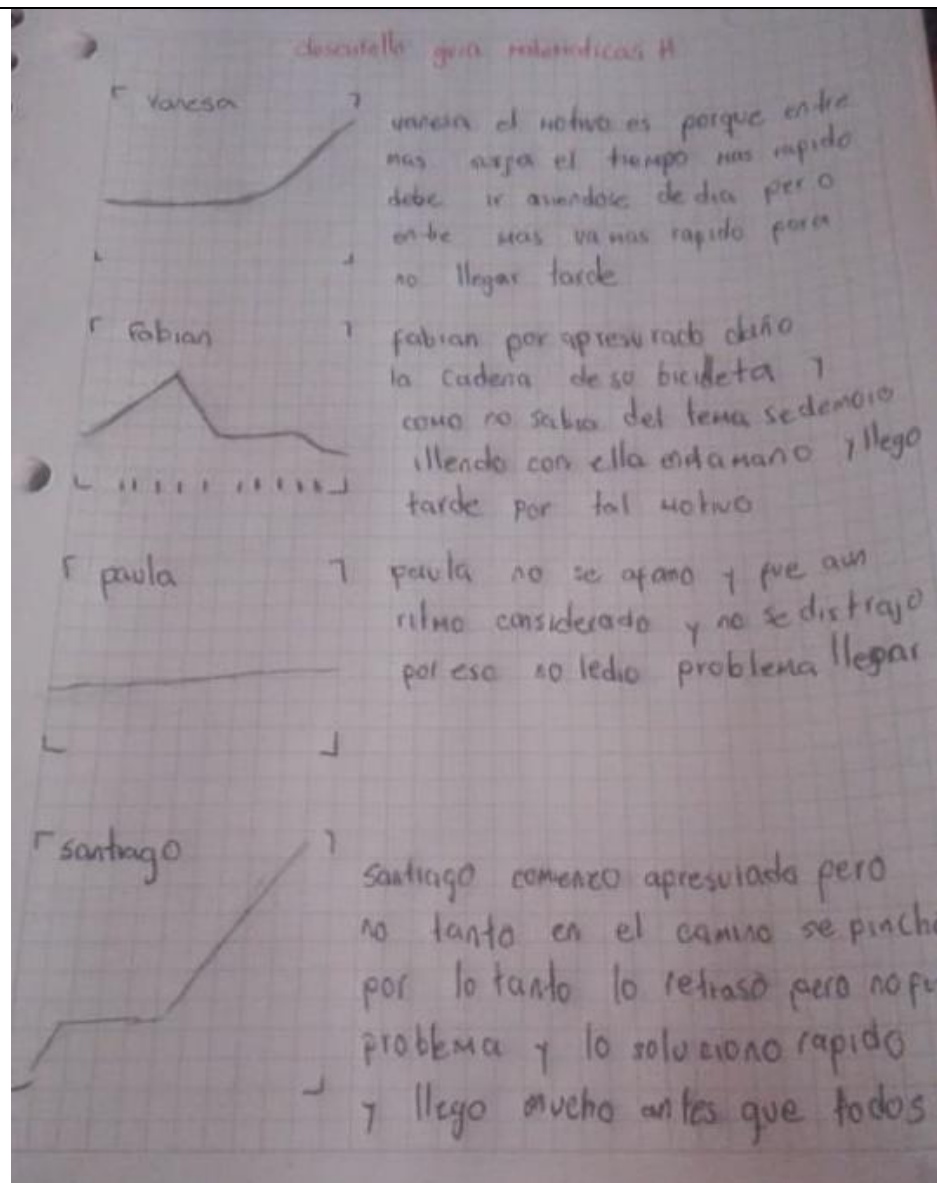 guia matematicas #
Vanesa
vanesa el motivo es porque entre
mas surja el tiempo mas rapido
debe ir de dia pero
entre mas va mas rapido para
no llegar tarde
Fabian
fabian por apresurado daño
la cadena de su bicicleta y
como no sabia del tema se demoro
illendo con ella en la mano y llego
tarde por tal motivo
paula
paula no se afano y fue aun
ritmo considerado y no se distrajo
por eso no ledio problema llegar
santiago
santiago comenzo apresurado pero
no tanto en el camino se pincho
por lo tanto lo retraso pero no fu
problema y lo soluciono rapido
y llego mucho antes que todos